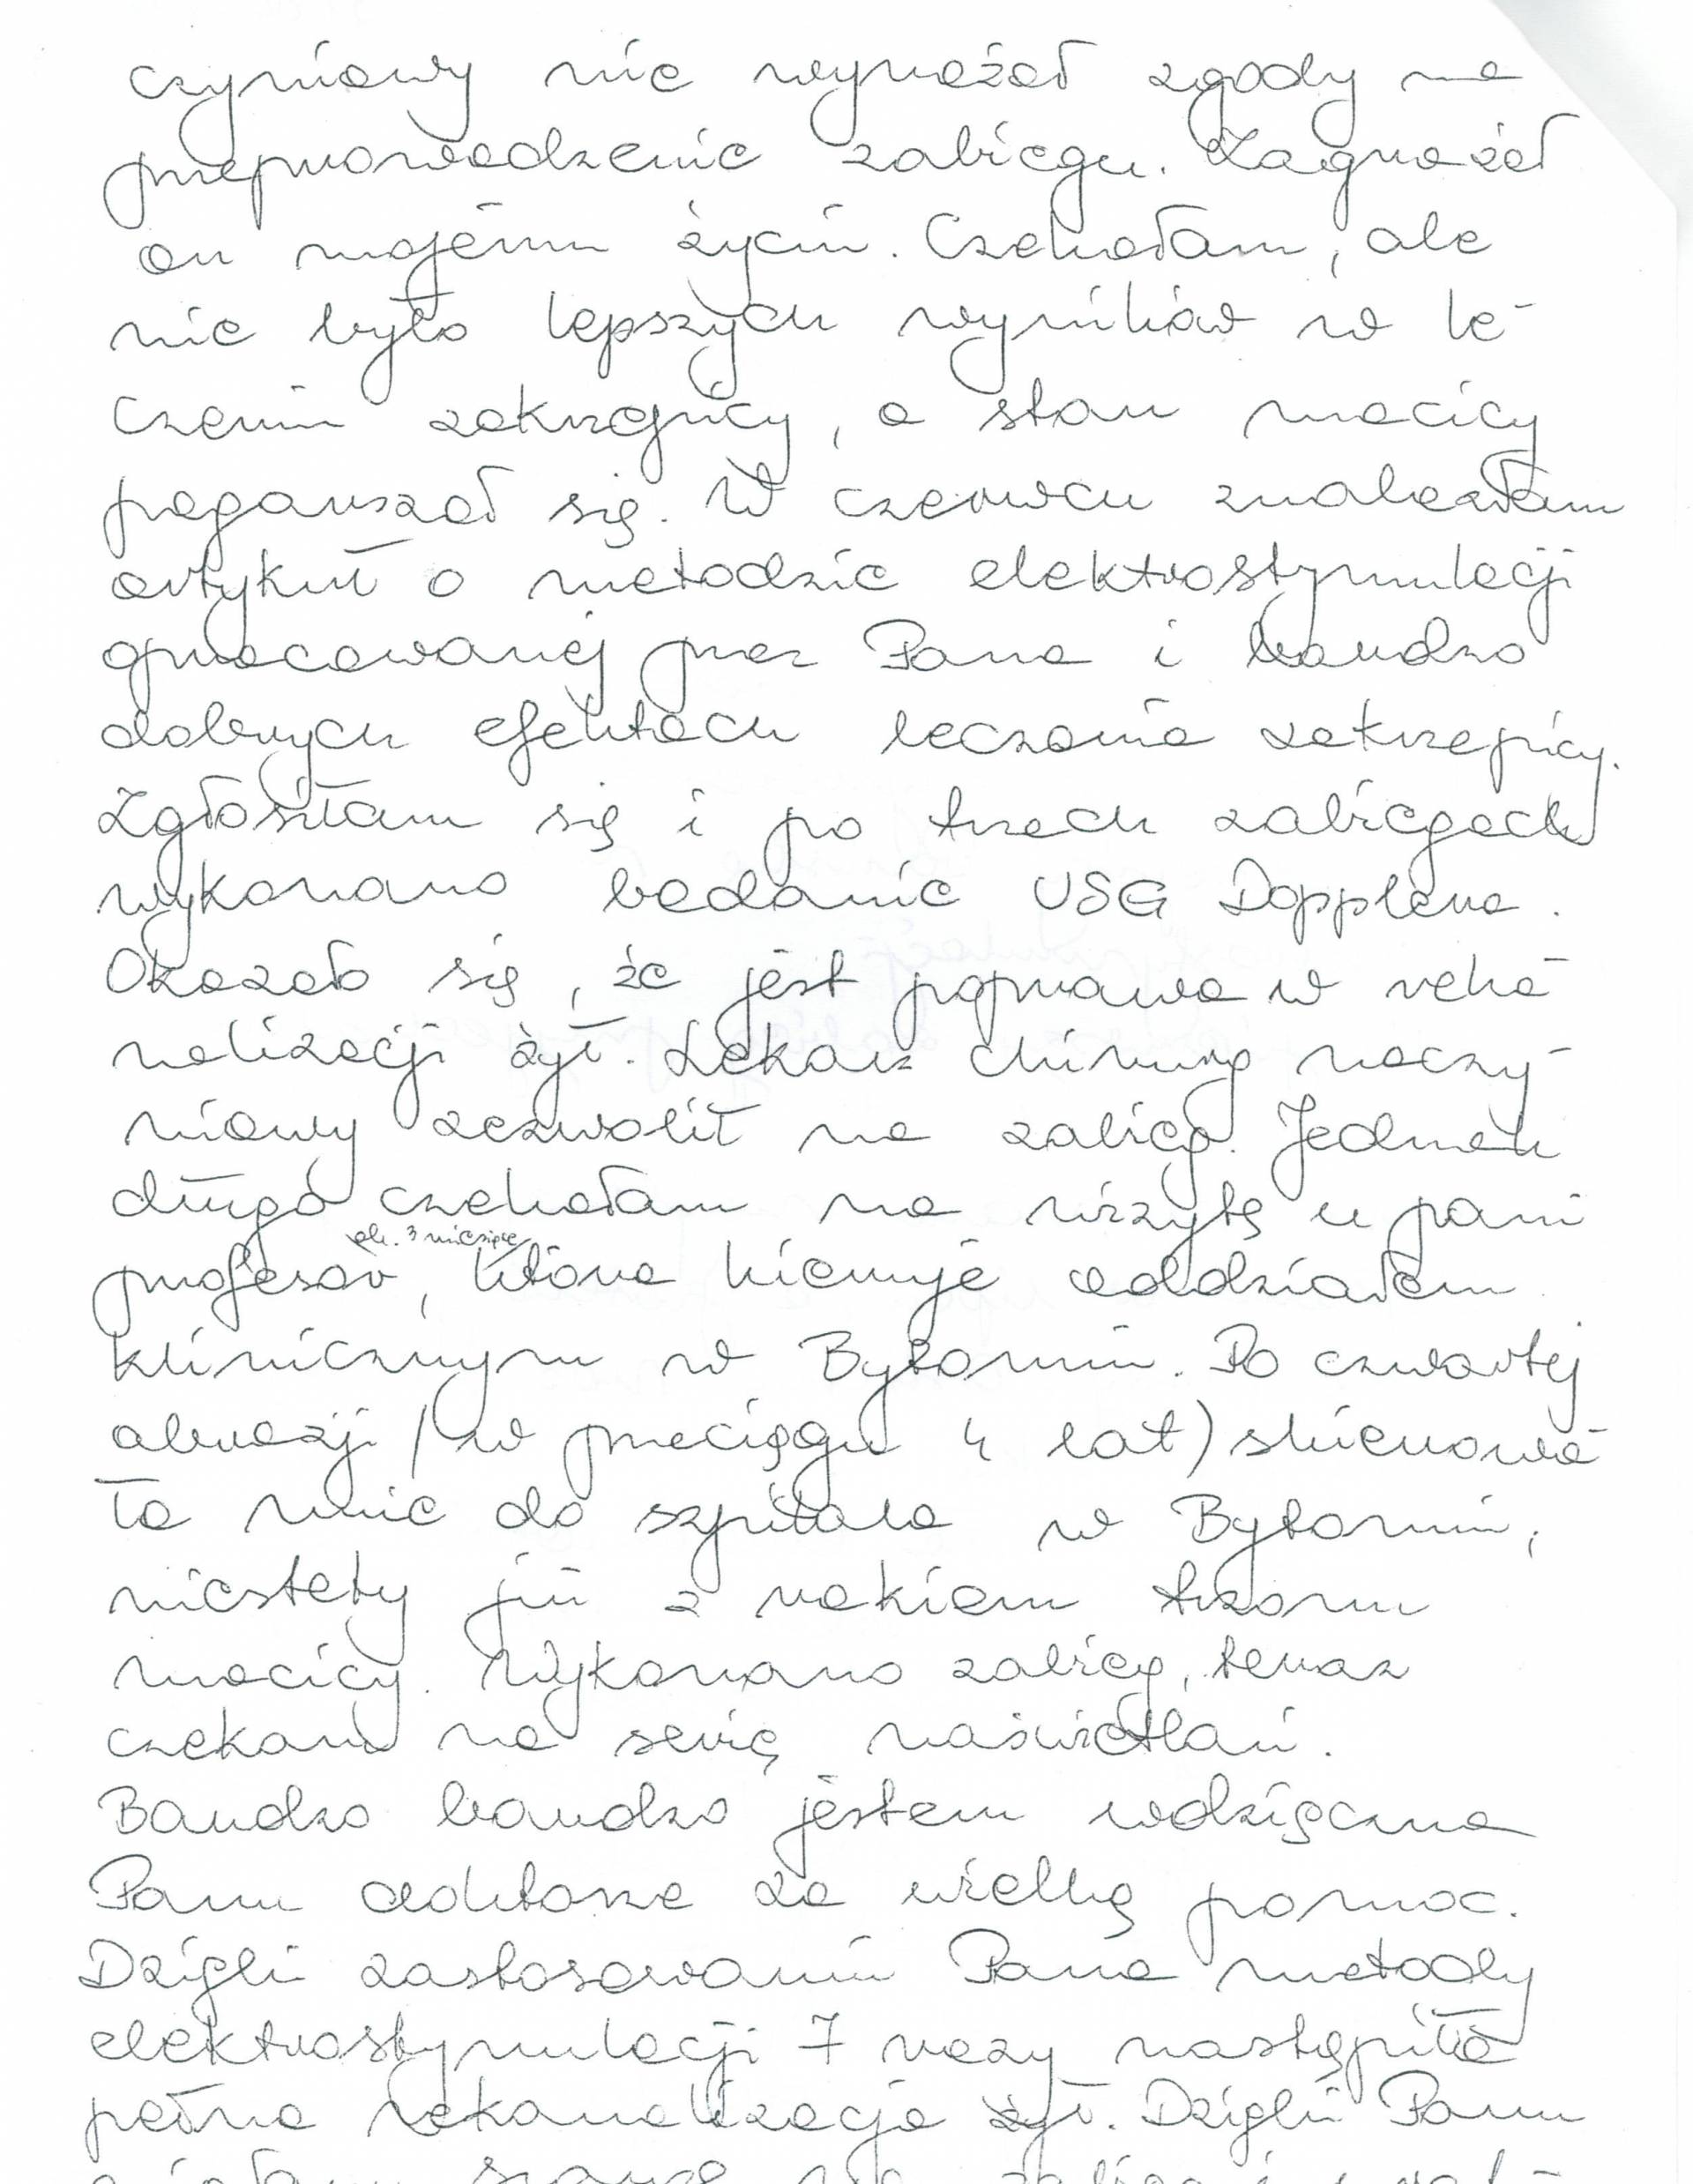 czyniowy nie wyrażał zgody na
przeprowadzenie zabiegu. Zagrażał
on mojemu życiu. Czekałam, ale
nie było lepszych wyników w le-
czeniu zakrzepicy, a stan macicy
pogarszał się. W czerwcu znalazłam
artykuł o metodzie elektrostymulacji
opracowanej przez Pana i bardzo
dobrych efektach leczenia zakrzepicy.
Zgłosiłam się i po trzech zabiegach
wykonano badanie USG Dopplera.
Okazało się, że jest poprawa w reka-
nalizacji żył. Lekarz chirurg naczy-
niowy zezwolił na zabieg. Jednak
długo czekałam na wizytę u pani
ok. 3 miesiące
profesor, która kieruje oddziałem
klinicznym w Bytomiu. Po czwartej
abrazji (w przeciągu 4 lat) skierowa-
ła mnie do szpitala w Bytomiu,
niestety już z rakiem trzonu
macicy. Wykonano zabieg, teraz
czekam na serię naświetlań.
Bardzo bardzo jestem wdzięczna
Panu doktorze za wielką pomoc.
Dzięki zastosowaniu Pana metody
elektrostymulacji 7 razy nastąpiła
pełna rekanalizacja żył. Dzięki Panu